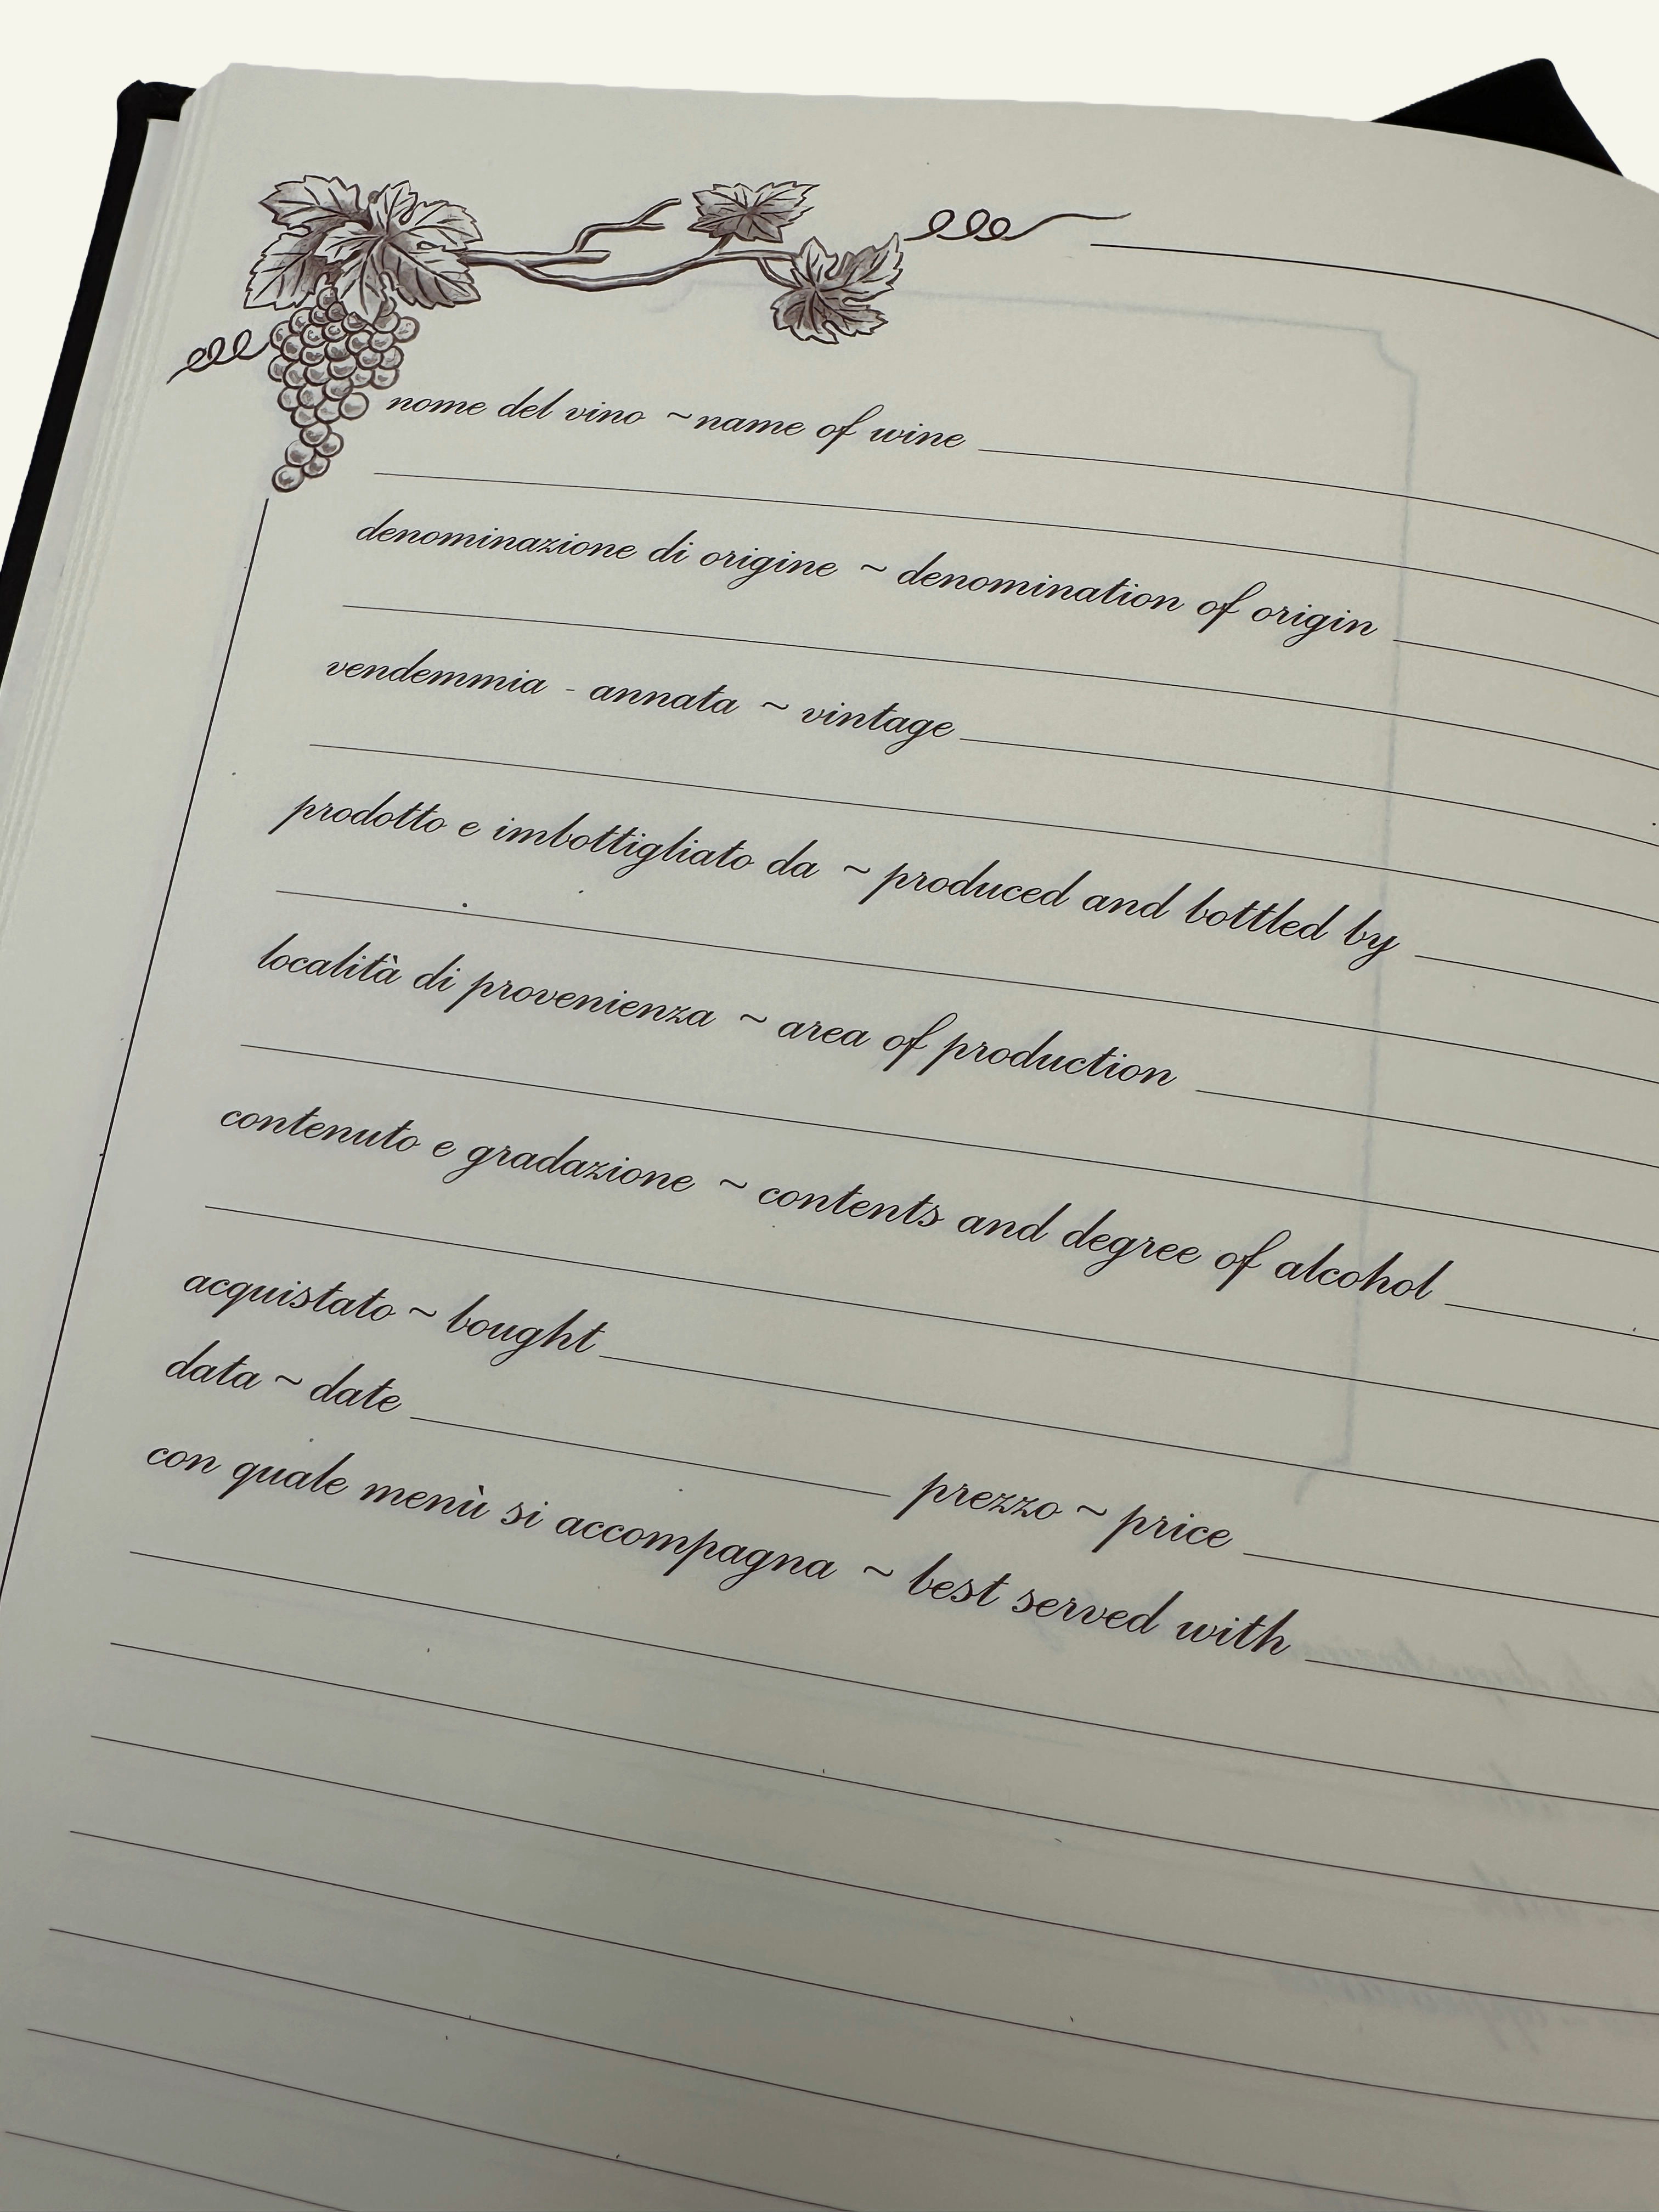 nome del vino ~ name of wine
denominazione di origine ~ denomination of origin
vendemmia - annata ~ vintage
prodotto e imbottigliato da ~ produced and bottled by
località di provenienza ~ area of production
contenuto e gradazione ~ contents and degree of alcohol
acquistato ~ bought
data ~ date prezzo ~ price
con quale menù si accompagna ~ best served with